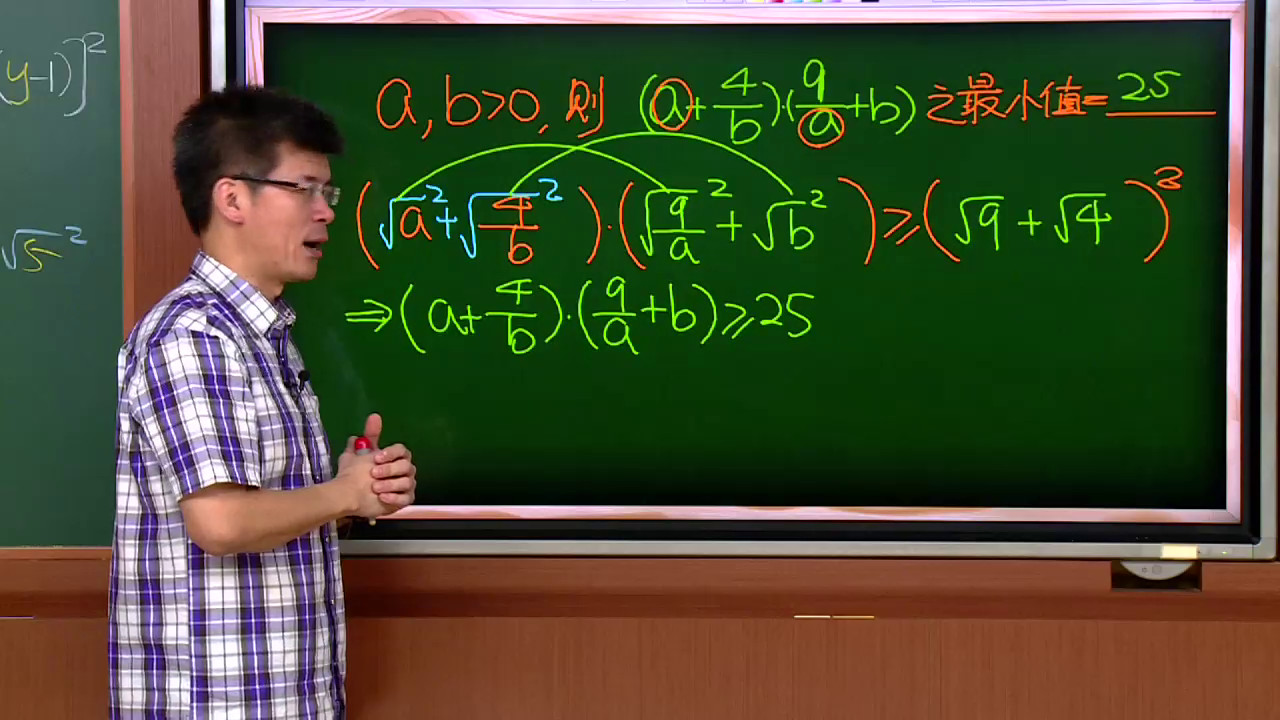 (y-1)]²
√5²
a, b>0, 则 (a+4/b)·(9/a+b) 之最小值=25
(√a²+√(4/b)²)·(√(9/a)²+√b²)≥(√9+√4)²
⇒(a+4/b)·(9/a+b)≥25